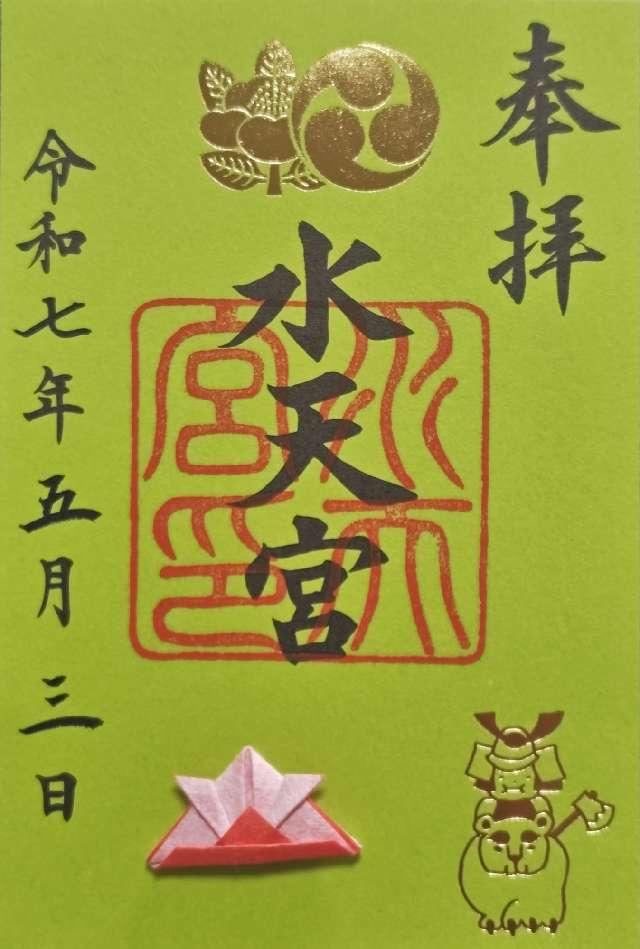 奉拝
水天宮
水天宮印
令和七年五月三日